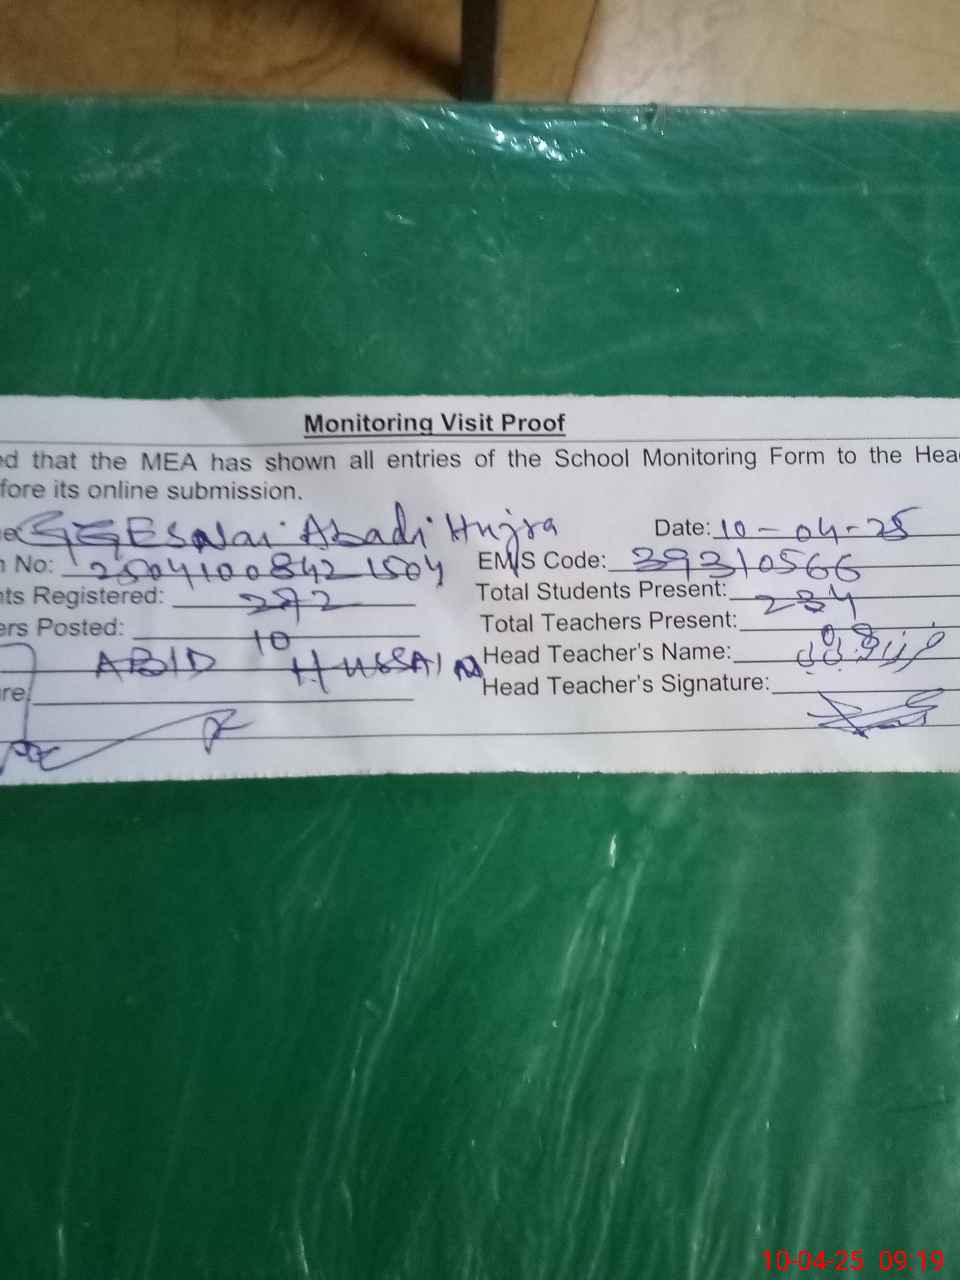 Monitoring Visit Proof
ed that the MEA has shown all entries of the School Monitoring Form to the Hea
fore its online submission.
e GGES Nai Abadi Hujra Date: 10-04-25
No: 25041008421504 EMIS Code: 39310566
nts Registered: 272 Total Students Present: 234
ers Posted: 10 Total Teachers Present: 08
ABID HUSSAIN Head Teacher's Name:
re Head Teacher's Signature:
10-04-25 09:19